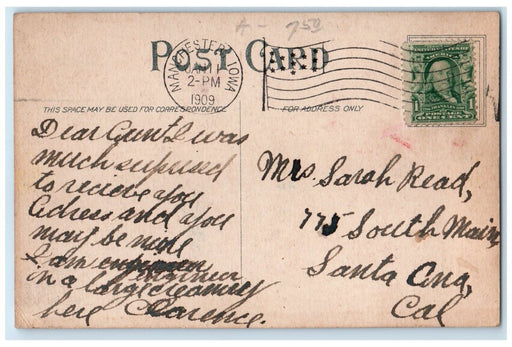 A- 7.50
POST CARD
MANCHESTER, IOWA
JAN 11
2-PM
1909
1 1
ONE CENT
THIS SPACE MAY BE USED FOR CORRESPONDENCE
FOR ADDRESS ONLY
Dear Aunt I was
much suprised
to recieve you
Adress and you
may be
I am
in a large creamery
here Clarence.
Mrs. Sarah Read,
775 South Main
Santa Ana,
Cal